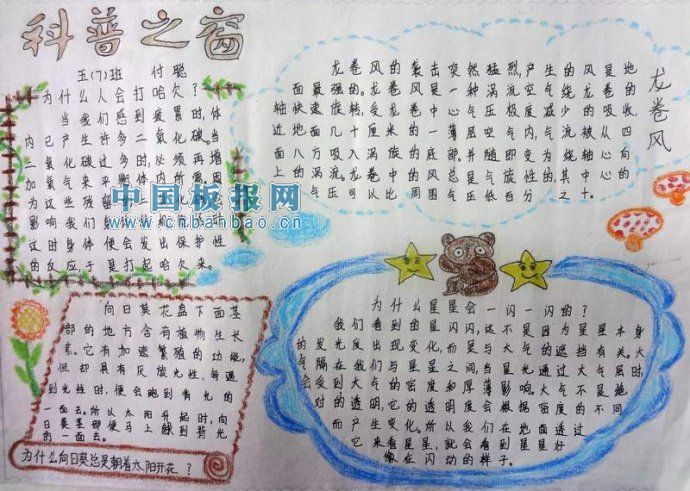 科普之窗
五(7)班 付聪
为什么人会打哈欠?
当我们感到疲累时,体
内已产生许多二氧化碳。当
二氧化碳过多时,必须再增
加氧气来平衡体内所需。因
为这些残留
影响我们身体的机
这时身体便会发出保护性
的反应于是打起哈欠来。
中国板报网
www.cnbanbao.cn
龙卷风
龙卷风的袭击突然猛烈,产生的风是地
面最强的。龙卷风是一种涡流空气绕龙卷的
轴快速旋转,受龙卷中心气压极度减少的吸收,
近地面几十厘米的一薄层空气内,气流被从四
面八方吸入涡旋的底部。并随即变为绕轴心向
上的涡流。龙卷中的风总是气旋性的其中心的
气压可以比周围气压低百分之十。
向日葵花盘下面茎
部的地方含有植物生长
素。它有加速繁殖的功能,
但却具有反旋光性,每遇
到光性时,便会跑到背光的
一面去。所以太阳升起时,向
日葵茎部便马上躲到背光
的一面去。
为什么向日葵总是朝着太阳开花?
为什么星星会一闪一闪的?
我们看到的星闪闪,这不是因为星星本身
的发光反出现变化,而是与大气的遮挡有关。大
气隔在我们与星星之间当星光通过大气层时,
会受到大气的密度和厚薄影响。大气不是绝
对的透明,它的透明度会根据密度的不同
而产生变化。所以我们在地面透过
它来看星星,就会看到星星好
像在闪动的样子。